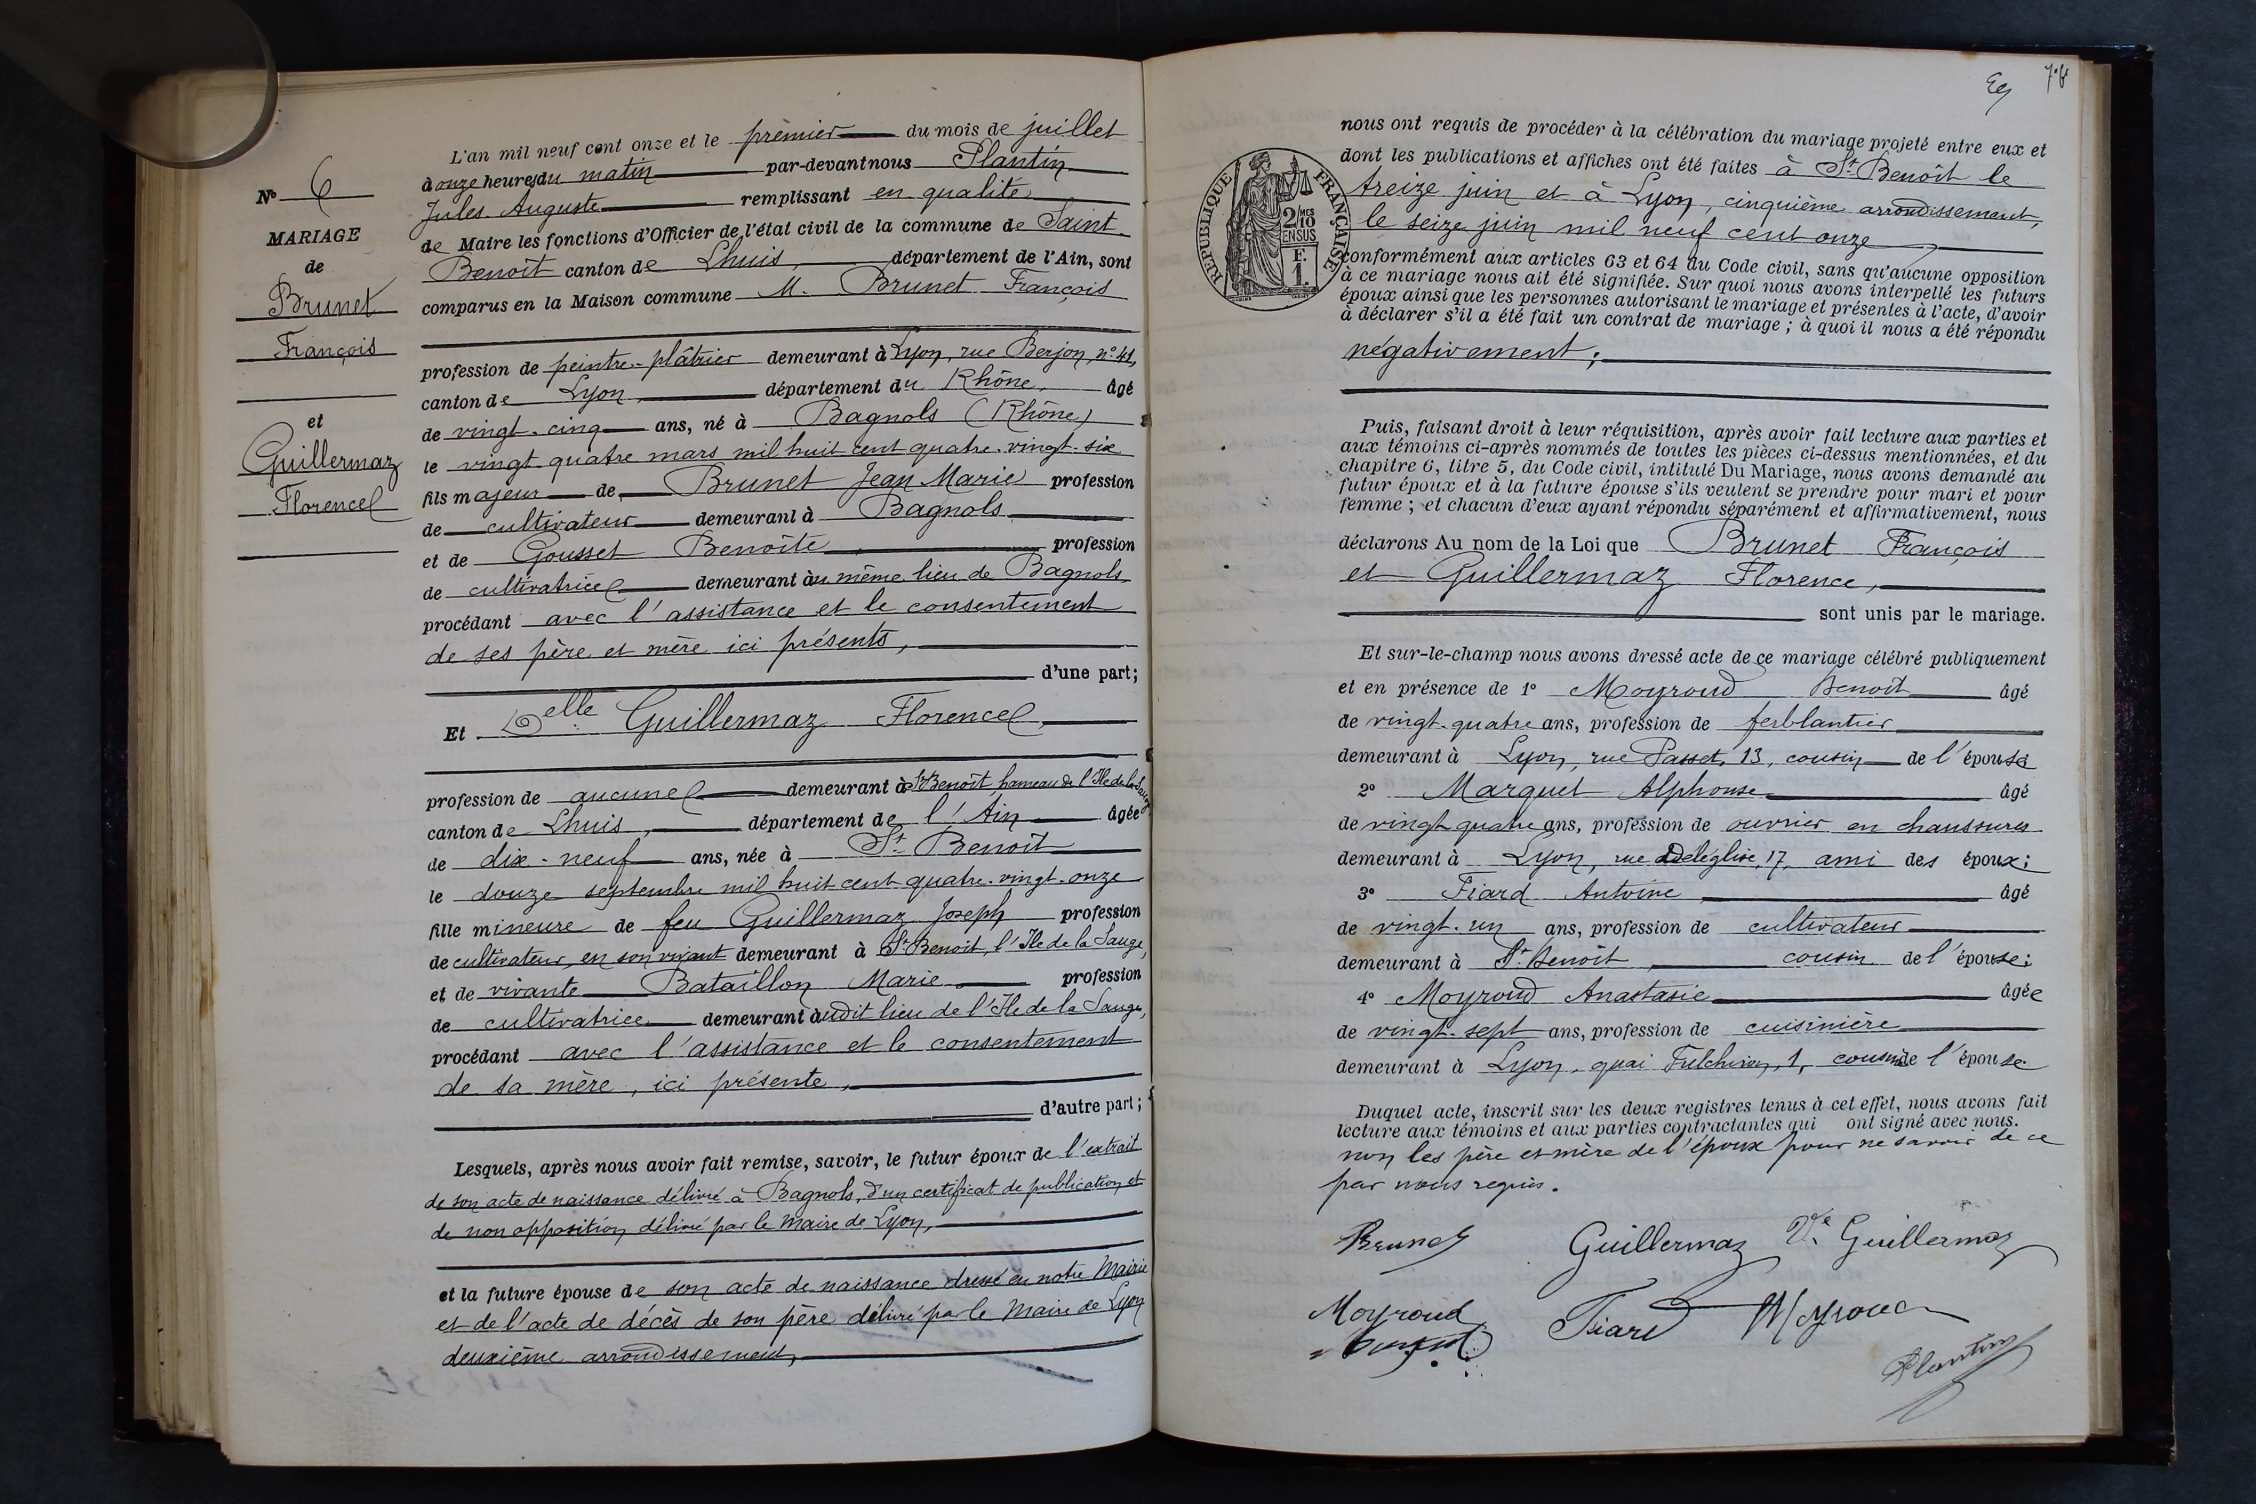 N° 6
MARIAGE
de
Brunet
François
et
Guillermaz
Florence
L'an mil neuf cent onze et le premier du mois de juillet
à onze heures du matin par-devant nous Plantin
Jules Auguste remplissant en qualité
de Maire les fonctions d'Officier de l'état civil de la commune de Saint
Benoît canton de Lhuis, département de l'Ain, sont
comparus en la Maison commune M. Brunet François
profession de peintre-plâtrier demeurant à Lyon, rue Berjon, n° 41,
canton de Lyon, département du Rhône, âgé
de vingt-cinq ans, né à Bagnols (Rhône)
le vingt-quatre mars mil huit cent quatre-vingt-six
fils majeur de Brunet Jean Marie profession
de cultivateur demeurant à Bagnols
et de Gousset Benoîte, profession
de cultivatrice demeurant au même lieu de Bagnols,
procédant avec l'assistance et le consentement
de ses père et mère ici présents,
d'une part;
Et Delle Guillermaz Florence
profession de aucune demeurant à St Benoît, hameau de l'Ile de la Sauge
canton de Lhuis, département de l'Ain âgée
de dix-neuf ans, née à St Benoît
le douze septembre mil huit cent quatre-vingt-onze
fille mineure de feu Guillermaz Joseph profession
de cultivateur, en son vivant demeurant à St Benoît, l'Ile de la Sauge,
et de vivante Bataillon Marie profession
de cultivatrice demeurant audit lieu de l'Ile de la Sauge,
procédant avec l'assistance et le consentement
de sa mère, ici présente,
d'autre part;
Lesquels, après nous avoir fait remise, savoir, le futur époux de l'extrait
de son acte de naissance délivré à Bagnols, d'un certificat de publication et
de non opposition délivré par le Maire de Lyon,
et la future épouse de son acte de naissance dressé en notre Mairie
et de l'acte de décès de son père délivré par le Maire de Lyon
deuxième arrondissement,
REPUBLIQUE FRANÇAISE
2/10 MES
EN SUS
F.
1.
nous ont requis de procéder à la célébration du mariage projeté entre eux et
dont les publications et affiches ont été faites à St Benoît le
treize juin et à Lyon, cinquième arrondissement,
le seize juin mil neuf cent onze,
conformément aux articles 63 et 64 du Code civil, sans qu'aucune opposition
à ce mariage nous ait été signifiée. Sur quoi nous avons interpellé les futurs
époux ainsi que les personnes autorisant le mariage et présentes à l'acte, d'avoir
à déclarer s'il a été fait un contrat de mariage; à quoi il nous a été répondu
négativement;
Puis, faisant droit à leur réquisition, après avoir fait lecture aux parties et
aux témoins ci-après nommés de toutes les pièces ci-dessus mentionnées, et du
chapitre 6, titre 5, du Code civil, intitulé Du Mariage, nous avons demandé au
futur époux et à la future épouse s'ils veulent se prendre pour mari et pour
femme; et chacun d'eux ayant répondu séparément et affirmativement, nous
déclarons Au nom de la Loi que Brunet François
et Guillermaz Florence,
sont unis par le mariage.
Et sur-le-champ nous avons dressé acte de ce mariage célébré publiquement
et en présence de 1° Moyroud Benoît âgé
de vingt-quatre ans, profession de ferblantier
demeurant à Lyon, rue Passet, 13, cousin de l'épouse
2° Marquet Alphonse âgé
de vingt quatre ans, profession de ouvrier en chaussures
demeurant à Lyon, rue Deléglise, 17, ami des époux;
3° Fiard Antoine âgé
de vingt-un ans, profession de cultivateur
demeurant à St Benoît, cousin de l'épouse;
4° Moyroud Anastasie âgée
de vingt-sept ans, profession de cuisinière
demeurant à Lyon, quai Fulchiron, 1, cousine de l'épouse
Duquel acte, inscrit sur les deux registres tenus à cet effet, nous avons fait
lecture aux témoins et aux parties contractantes qui ont signé avec nous.
non les père et mère de l'époux pour ne savoir de ce
par nous requis.
Brunet Guillermaz Ve Guillermaz
Moyroud Fiard Moyroud
Plantin